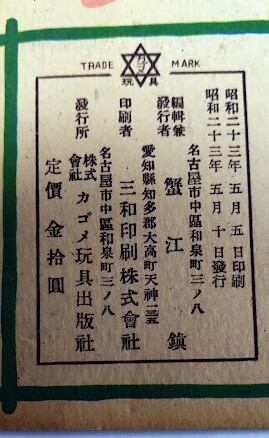 TRADE MARK
カゴメ
玩具
昭和二十三年五月五日印刷
昭和二十三年五月十日發行
名古屋市中區和泉町三ノ八
編輯兼
發行者 蟹江 鎮
愛知縣知多郡大高町天神一五
印刷者 三和印刷株式會社
名古屋市中區和泉町三ノ八
發行所 株式會社 カゴメ玩具出版社
定價 金拾圓